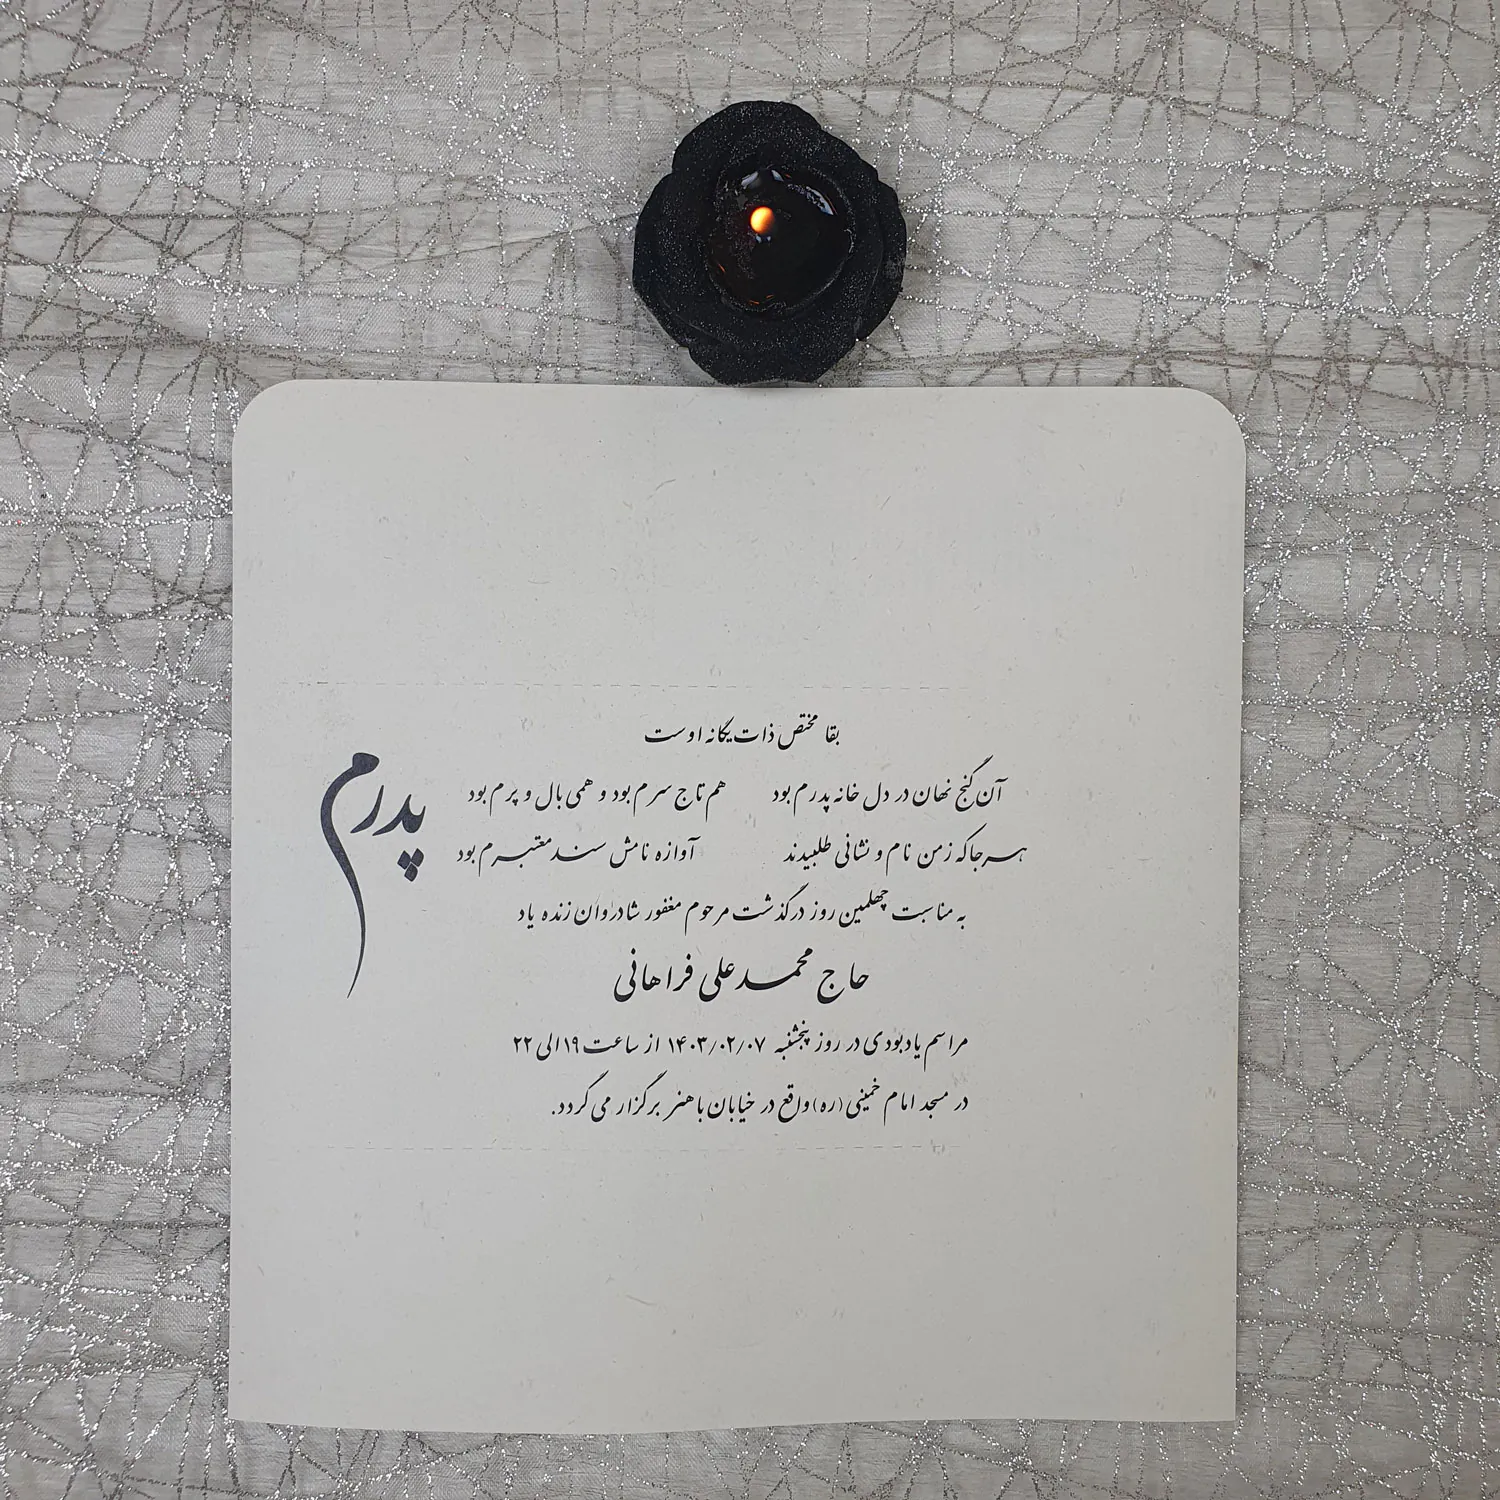 بقا مختص ذات یگانه اوست
پدرم
آن گنج نهان در دل خانه پدرم بود هم تاج سرم بود و همی بال و پرم بود
هر جا که ز من نام و نشانی طلبیدند آوازه نامش سند معتبرم بود
به مناسبت چهلمین روز درگذشت مرحوم مغفور شادروان زنده یاد
حاج محمد علی فراهانی
مراسم یادبودی در روز پنجشنبه ۱۴۰۳/۰۲/۰۷ از ساعت ۱۹ الی ۲۲
در مسجد امام خمینی (ره) واقع در خیابان باهنر برگزار می گردد.